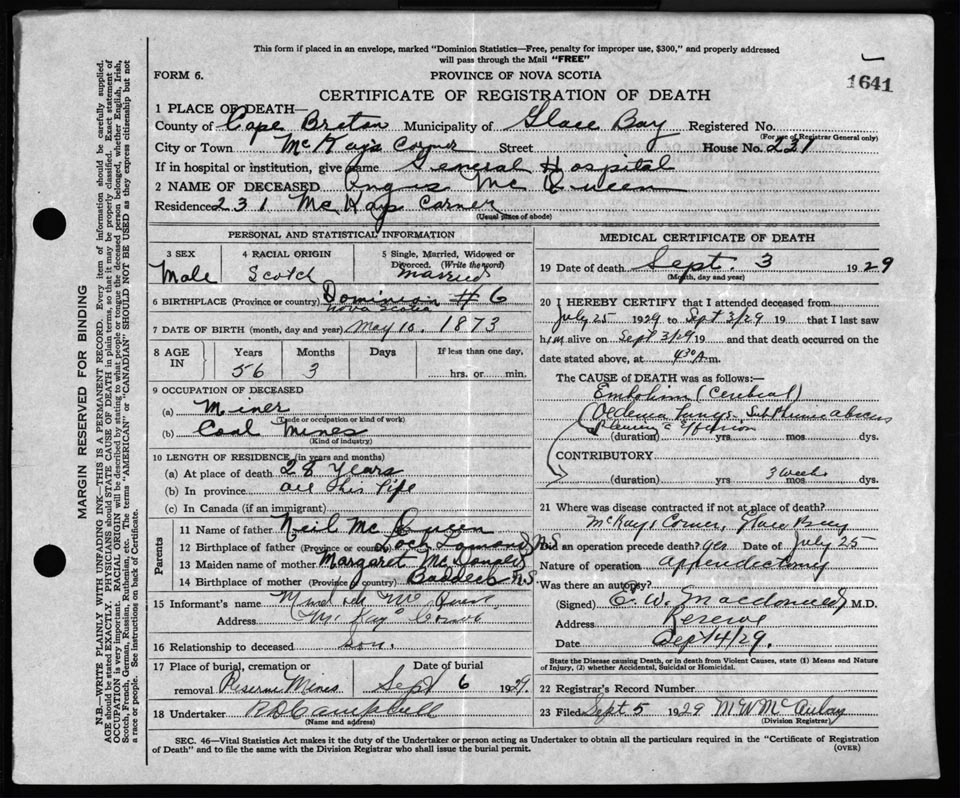 This form if placed in an envelope, marked "Dominion Statistics—Free, penalty for improper use, $300," and properly addressed
will pass through the Mail "FREE"
FORM 6.
PROVINCE OF NOVA SCOTIA
1641
CERTIFICATE OF REGISTRATION OF DEATH
1 PLACE OF DEATH—
County of Cape Breton Municipality of Glace Bay Registered No.
(For use of Registrar General only)
City or Town McKays Corner Street House No. 231
If in hospital or institution, give name General Hospital
2 NAME OF DECEASED Angus McQueen
Residence 231 McKays Corner
(Usual place of abode)
PERSONAL AND STATISTICAL INFORMATION
3 SEX
Male
4 RACIAL ORIGIN
Scotch
5 Single, Married, Widowed or
Divorced. (Write the word)
Married
6 BIRTHPLACE (Province or country) Dominion #6
Nova Scotia
7 DATE OF BIRTH (month, day and year) May 10. 1873
8 AGE IN
Years Months Days If less than one day,
56 3 hrs. or min.
9 OCCUPATION OF DECEASED
(a) Miner
(Trade or occupation or kind of work)
(b) Coal Mines
(Kind of industry)
10 LENGTH OF RESIDENCE (in years and months)
(a) At place of death 28 Years
(b) In province all his life
(c) In Canada (if an immigrant)
Parents
11 Name of father Neil McQueen
12 Birthplace of father (Province or country) Loch Lomond NS
13 Maiden name of mother Margaret McDonald
14 Birthplace of mother (Province or country) Baddeck NS
15 Informant's name McQueen
Address McKays Corner
16 Relationship to deceased son.
17 Place of burial, cremation or
removal Reserve Mines
Date of burial
Sept 6 1929.
18 Undertaker Campbell
(Name and address)
MEDICAL CERTIFICATE OF DEATH
19 Date of death Sept. 3 1929
(Month, day and year)
20 I HEREBY CERTIFY that I attended deceased from
July 25 1929 to Sept 3/29 19 that I last saw
him alive on Sept 3/29 19 and that death occurred on the
date stated above, at 4 30 A.m.
The CAUSE OF DEATH was as follows:—
Embolism (Cerebral)
Oedema Lungs. Sub Phrenic abscess
Pleurisy c Effusion
(duration) yrs mos dys.
CONTRIBUTORY
3 weeks
(duration) yrs mos dys.
21 Where was disease contracted if not at place of death?
McKays Corner, Glace Bay
Did an operation precede death? yes Date of July 25
Nature of operation appendectomy
Was there an autopsy?
(Signed) E. W. Macdonald M.D.
Address Reserve
Date Sept 4/29.
State the Disease causing Death, or in death from Violent Causes, state (1) Means and Nature
of Injury, (2) whether Accidental, Suicidal or Homicidal.
22 Registrar's Record Number
23 Filed Sept 5 1929 M W McAulay
(Division Registrar)
SEC. 46—Vital Statistics Act makes it the duty of the Undertaker or person acting as Undertaker to obtain all the particulars required in the "Certificate of Registration
of Death" and to file the same with the Division Registrar who shall issue the burial permit.
(OVER)
MARGIN RESERVED FOR BINDING
N.B.—WRITE PLAINLY WITH UNFADING INK—THIS IS A PERMANENT RECORD. Every item of information should be carefully supplied.
AGE should be stated EXACTLY. PHYSICIANS should STATE CAUSE OF DEATH in plain terms, so that it may be properly classified. Exact statement of
OCCUPATION is very important. RACIAL ORIGIN will be described by stating to what people or tongue the deceased person belonged, whether English, Irish,
Scotch, French, German, Russian, Ruthenian, etc. The terms "AMERICAN" or "CANADIAN" SHOULD NOT BE USED as they express citizenship but not
a race or people. See instructions on back of Certificate.